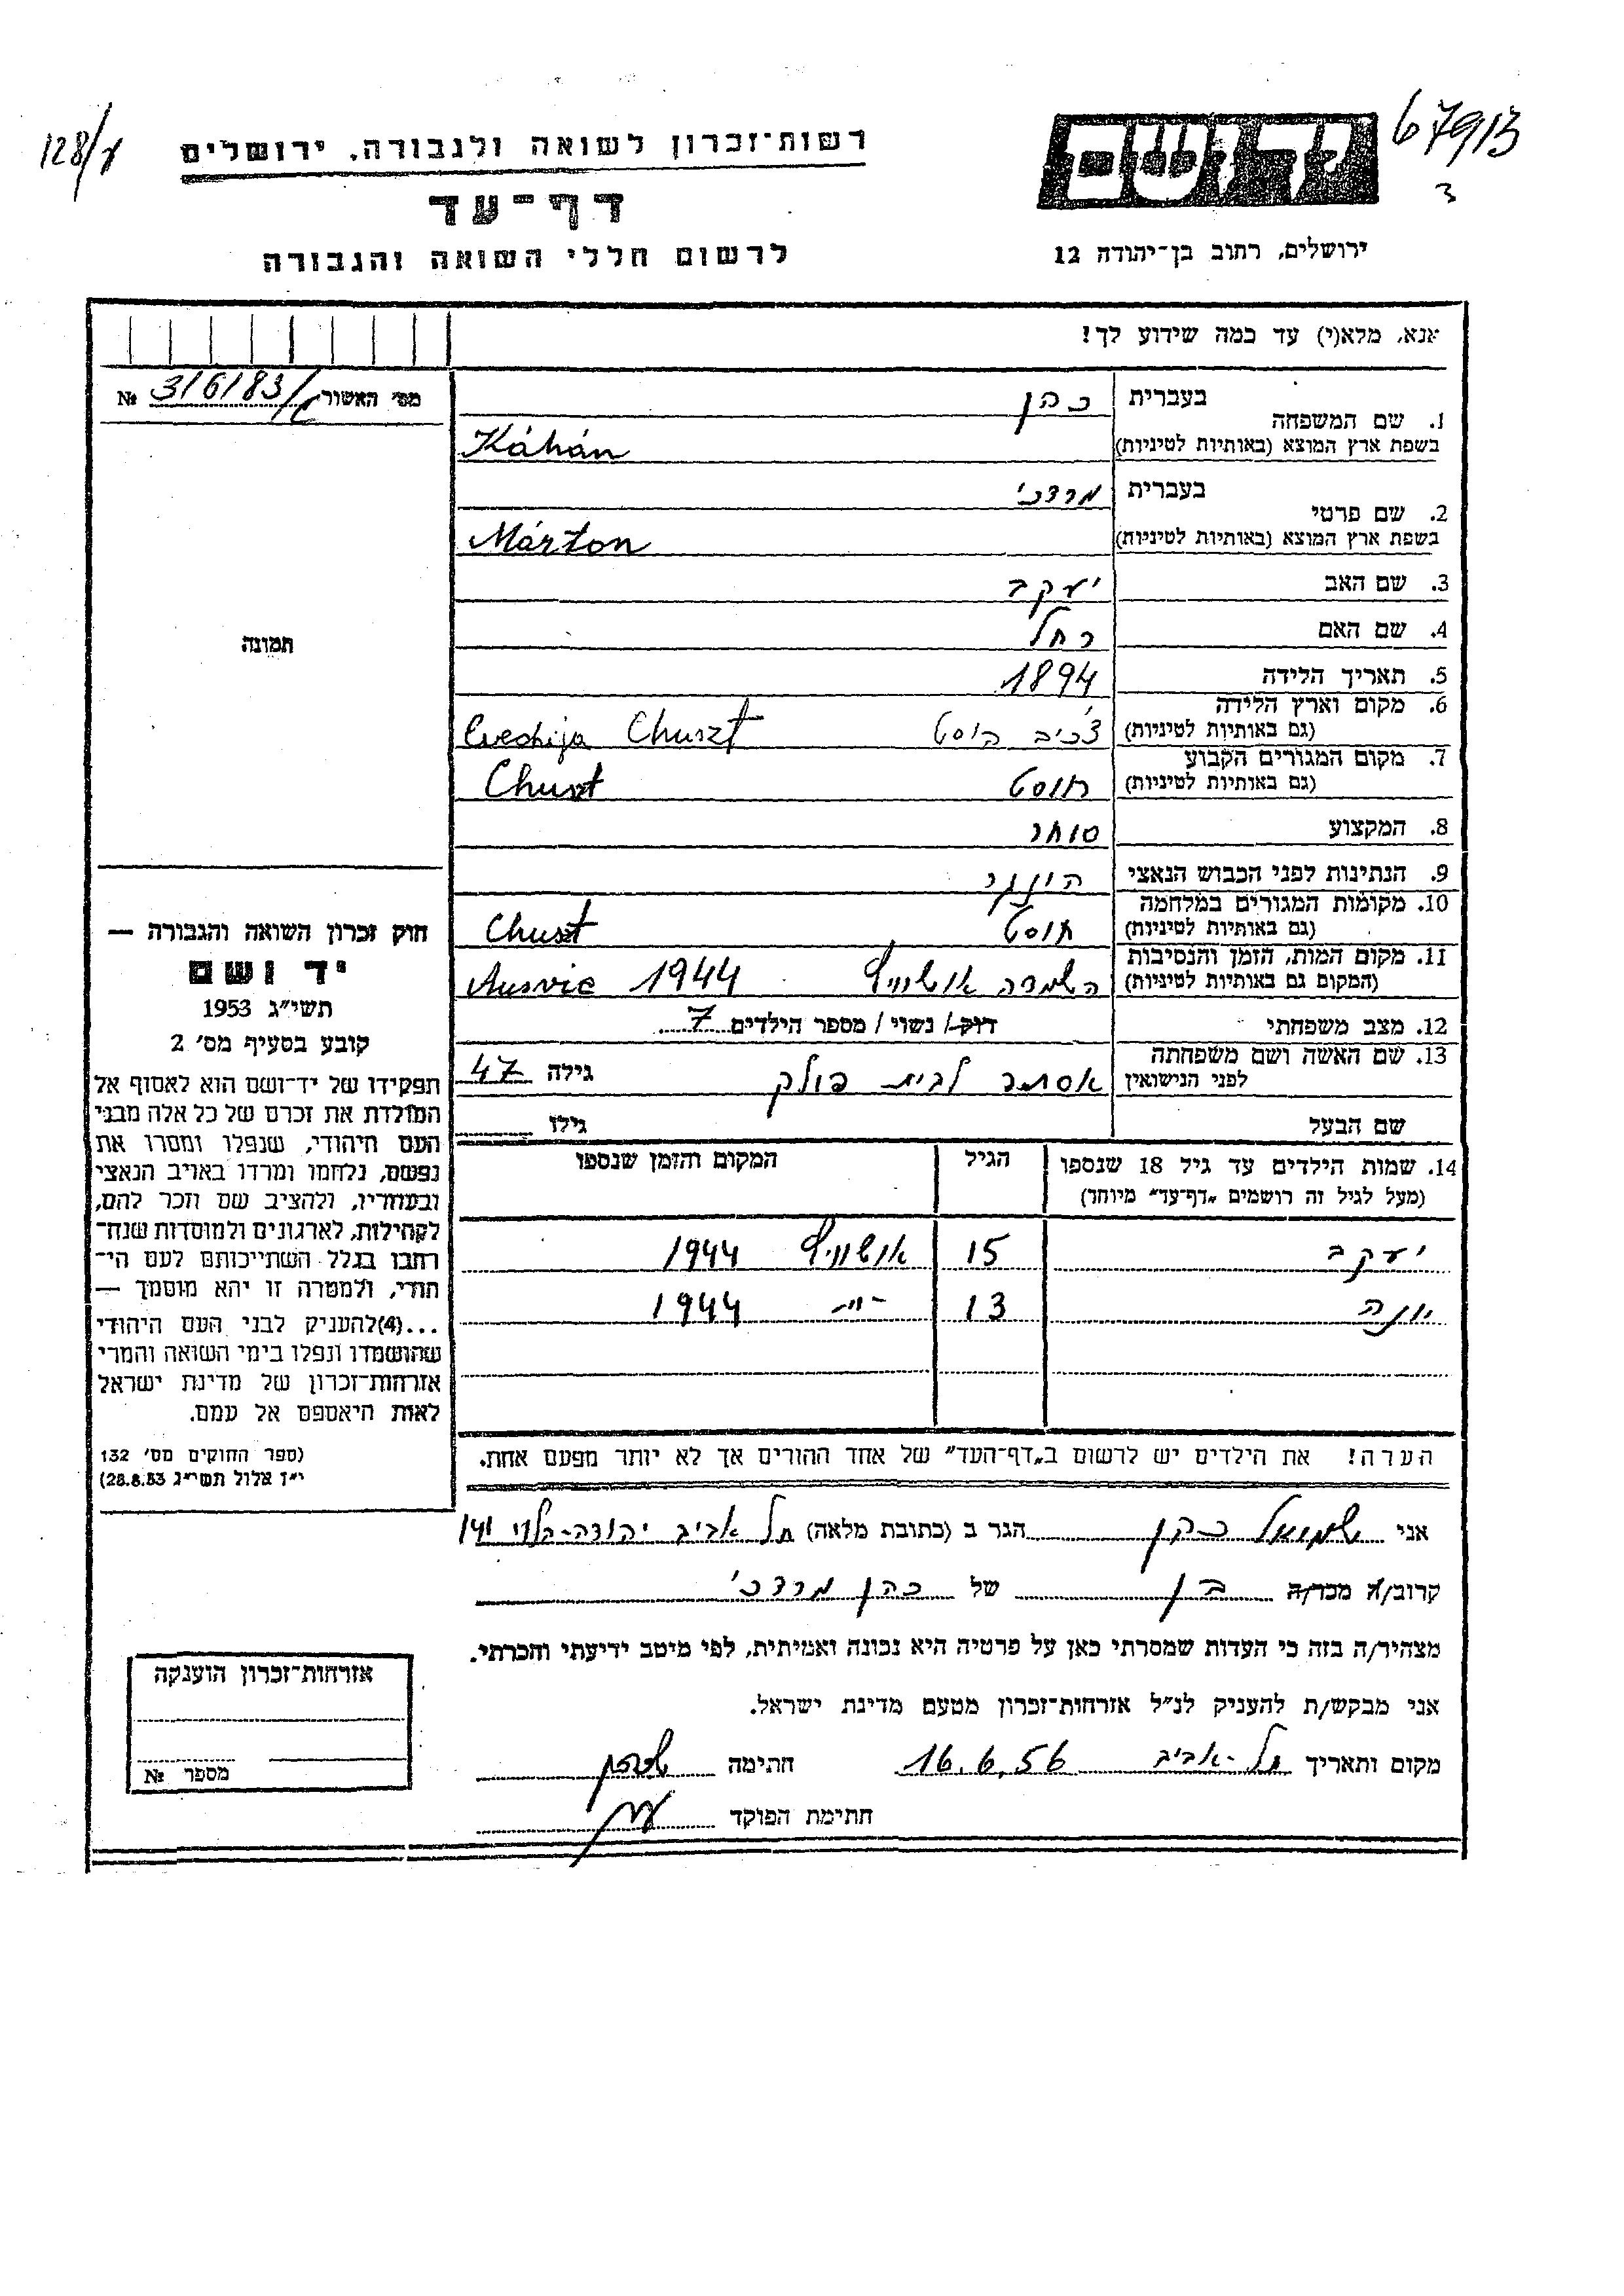 67913
3
128/ץ
יד ושם
רשות־זכרון לשואה ולגבורה, ירושלים
דף־עד
לרשום חללי השואה והגבורה
ירושלים, רחוב בן־יהודה 12
אנא, מלא(י) עד כמה שידוע לך!
מס׳ האשור 316183/ № 
תמונה
1. שם המשפחה בעברית כהן
בשפת ארץ המוצא (באותיות לטיניות) Káhán
2. שם פרטי בעברית מרדכי
בשפת ארץ המוצא (באותיות לטיניות) Márton
3. שם האב יעקב
4. שם האם רחל
5. תאריך הלידה 1894
6. מקום וארץ הלידה
(גם באותיות לטיניות) הוסט Chuszt
7. מקום המגורים הקבוע
(גם באותיות לטיניות) חוסט Chuszt
8. המקצוע סוחר
9. הנתינות לפני הכבוש הנאצי הונגרי
10. מקומות המגורים במלחמה
(גם באותיות לטיניות) חוסט Chuszt
11. מקום המות, הזמן והנסיבות
(המקום גם באותיות לטיניות) השמדה אושוויץ 1944 Ausvic
12. מצב משפחתי רוק/ נשוי / מספר הילדים 7
13. שם האשה ושם משפחתה
לפני הנישואין אסתר לבית פולק גילה 47
שם הבעל גילו
14. שמות הילדים עד גיל 18 שנספו הגיל המקום והזמן שנספו
(מעל לגיל זה רושמים „דף־עד״ מיוחד)
יעקב 15 אושוויץ 1944
יונה 13 -״- 1944
הערה! את הילדים יש לרשום ב„דף־העד״ של אחד ההורים אך לא יותר מפעם אחת.
חוק זכרון השואה והגבורה —
יד ושם
תשי״ג 1953
קובע בסעיף מס׳ 2
תפקידו של יד־ושם הוא לאסוף אל
המולדת את זכרם של כל אלה מבני
העם היהודי, שנפלו ומסרו את
נפשם, נלחמו ומרדו באויב הנאצי
ובעוזריו, ולהציב שם וזכר להם,
לקהילות, לארגונים ולמוסדות שנח־
רחבו בגלל השתייכותם לעם הי־
הודי, ולמטרה זו יהא מוסמך —
...(4)להעניק לבני העם היהודי
שהושמדו ונפלו בימי השואה והמרי
אזרחות־זכרון של מדינת ישראל
לאות היאספם אל עמם.
(ספר החוקים מס׳ 132
י״ז אלול תשי״ג 28.8.53)
אני שמואל כהן הגר ב (כתובת מלאה) תל אביב יהודה-הלוי 141
קרוב/ה מכר/ה בן של כהן מרדכי
מצהיר/ה בזה כי העדות שמסרתי כאן על פרטיה היא נכונה ואמיתית, לפי מיטב ידיעתי והכרתי.
אני מבקש/ת להעניק לנ״ל אזרחות־זכרון מטעם מדינת ישראל.
מקום ותאריך תל-אביב 16.6.56 חתימה
חתימת הפוקד
אזרחות־זכרון הוענקה
מספר №